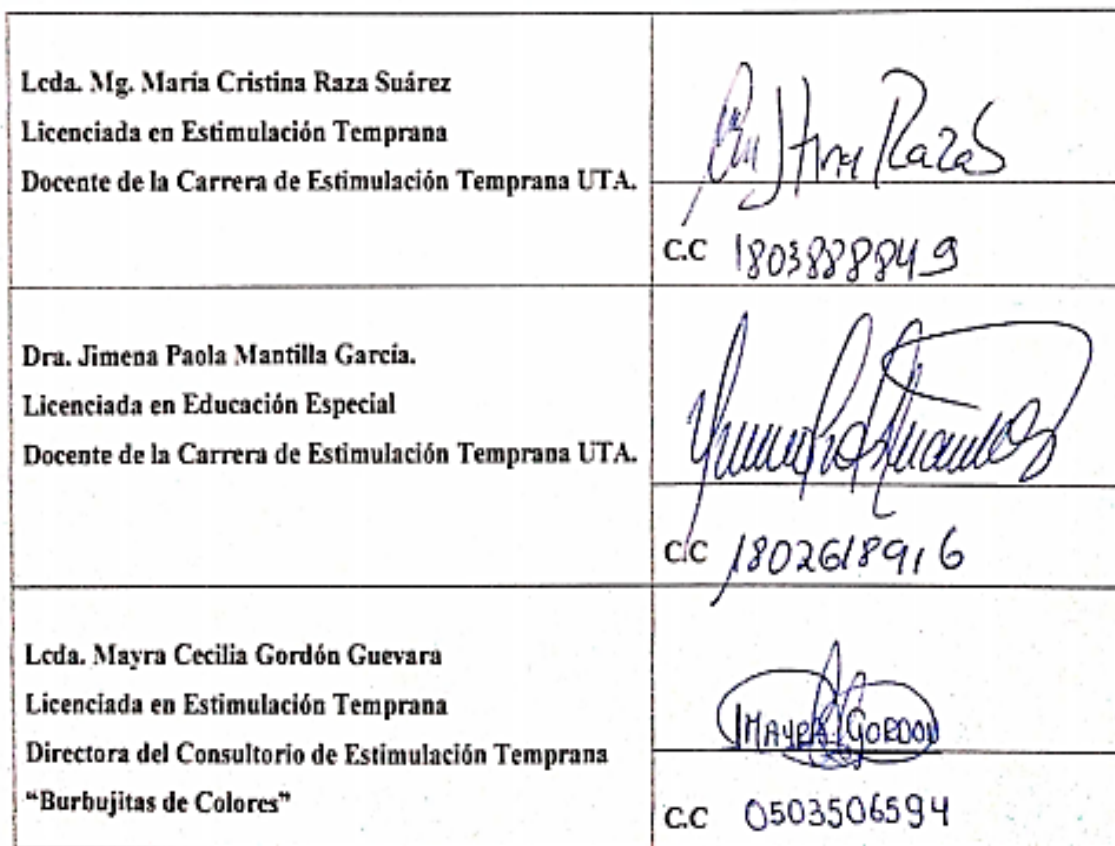 Lcda. Mg. María Cristina Raza Suárez
Licenciada en Estimulación Temprana
Docente de la Carrera de Estimulación Temprana UTA.
Razas
C.C 1803888849
Dra. Jimena Paola Mantilla García.
Licenciada en Educación Especial
Docente de la Carrera de Estimulación Temprana UTA.
C.C 1802618916
Lcda. Mayra Cecilia Gordón Guevara
Licenciada en Estimulación Temprana
Directora del Consultorio de Estimulación Temprana
"Burbujitas de Colores"
MAYRA GORDON
C.C 0503506594